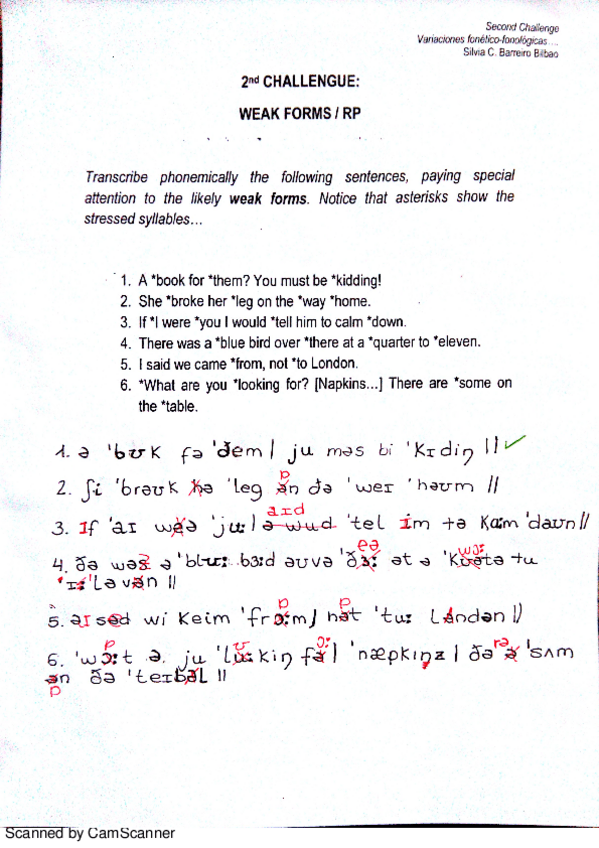 Second Challenge
Variaciones fonético-fonológicas ...
Silvia C. Barreiro Bilbao
2nd CHALLENGUE:
WEAK FORMS / RP
Transcribe phonemically the following sentences, paying special
attention to the likely weak forms. Notice that asterisks show the
stressed syllables...
1. A *book for *them? You must be *kidding!
2. She *broke her *leg on the *way *home.
3. If *I were *you I would *tell him to calm *down.
4. There was a *blue bird over *there at a *quarter to *eleven.
5. I said we came *from, not *to London.
6. *What are you *looking for? [Napkins...] There are *some on
the *table.
1. ə 'bʊk fə 'ðem | ju məs bi 'kɪdiŋ || ✓
ɒ
2. ʃi 'brəʊk hə 'leg ən ðə 'weɪ 'həʊm ||
aɪd
3. If 'aɪ wə 'juː| ə wud 'tel ɪm tə kɑːm 'daʊn ||
eə wɔː
4. ðə wəz ə 'bluː bɜːd əʊvə 'ðɜː ət ə 'kʊətə tu
'ɪː'levən ||
ɒ ɒ
5. aɪ sed wi keim 'frɔːm| nət 'tuː lʌndən ||
ɒ ʊ ɔː rə
6. 'wɔːt ə ju 'luːkiŋ fə| 'næpkɪnz | ðə ə 'sʌm
ən ðə 'teɪbəl ||
ɒ
Scanned by CamScanner